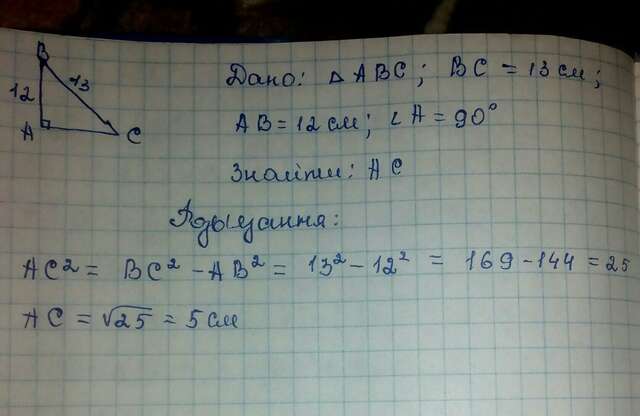 B
12
13
A
C
Дано: △ ABC; BC = 13 см;
AB = 12 см; ∠A = 90°
Знайти: AC
AC² = BC² - AB² = 13² - 12² = 169 - 144 = 25
AC = √25 = 5 см